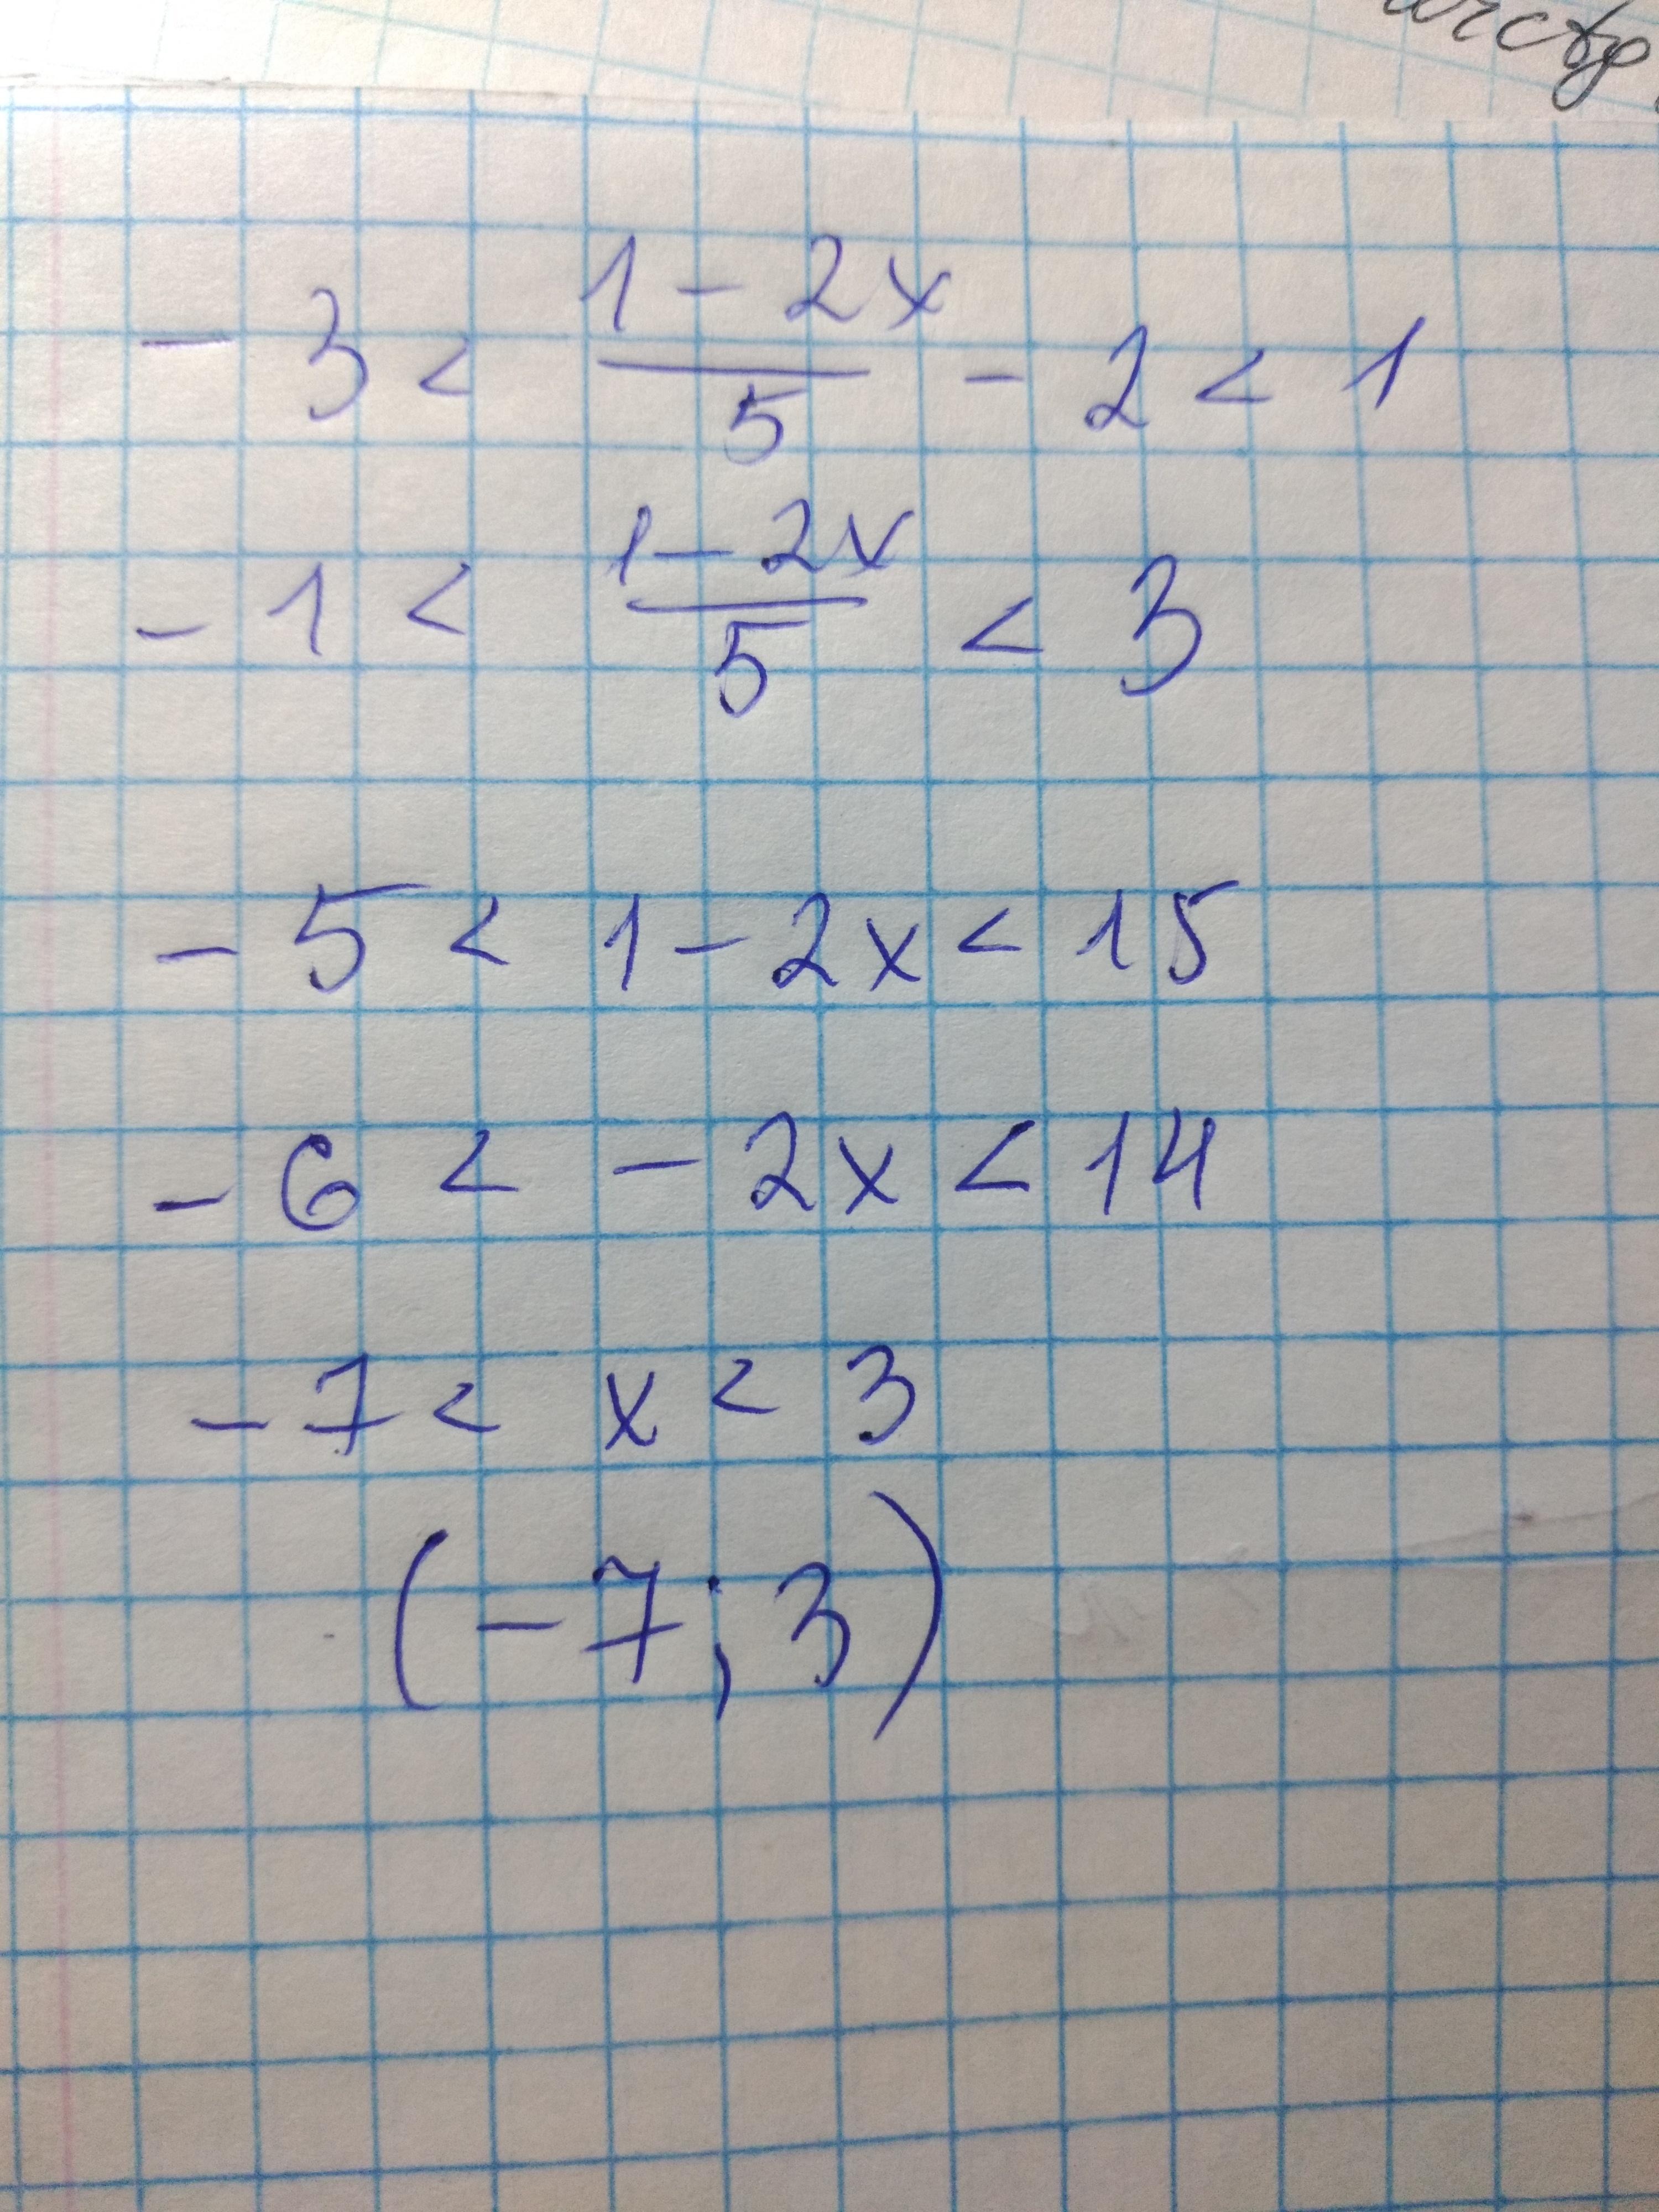 arctg
- 3 < \frac{1 - 2x}{5} - 2 < 1
- 1 < \frac{1 - 2x}{5} < 3
- 5 < 1 - 2x < 15
- 6 < - 2x < 14
- 7 < x < 3
(-7; 3)